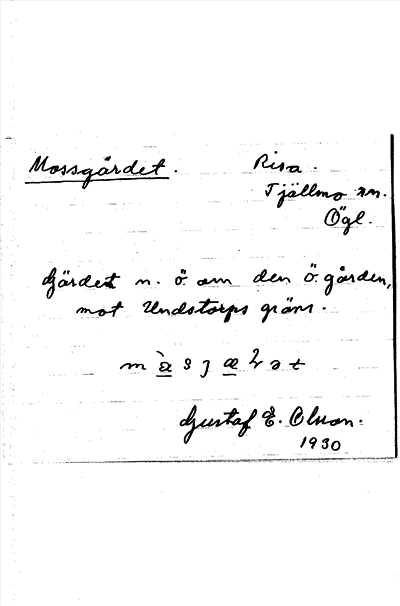 Mossgärdet. Risa.
Tjällmo sn.
Ögl.
Gärdet n. ö. om den Ö. gården,
mot Undstorps gräns.
Gustaf E. Olsson.
1930